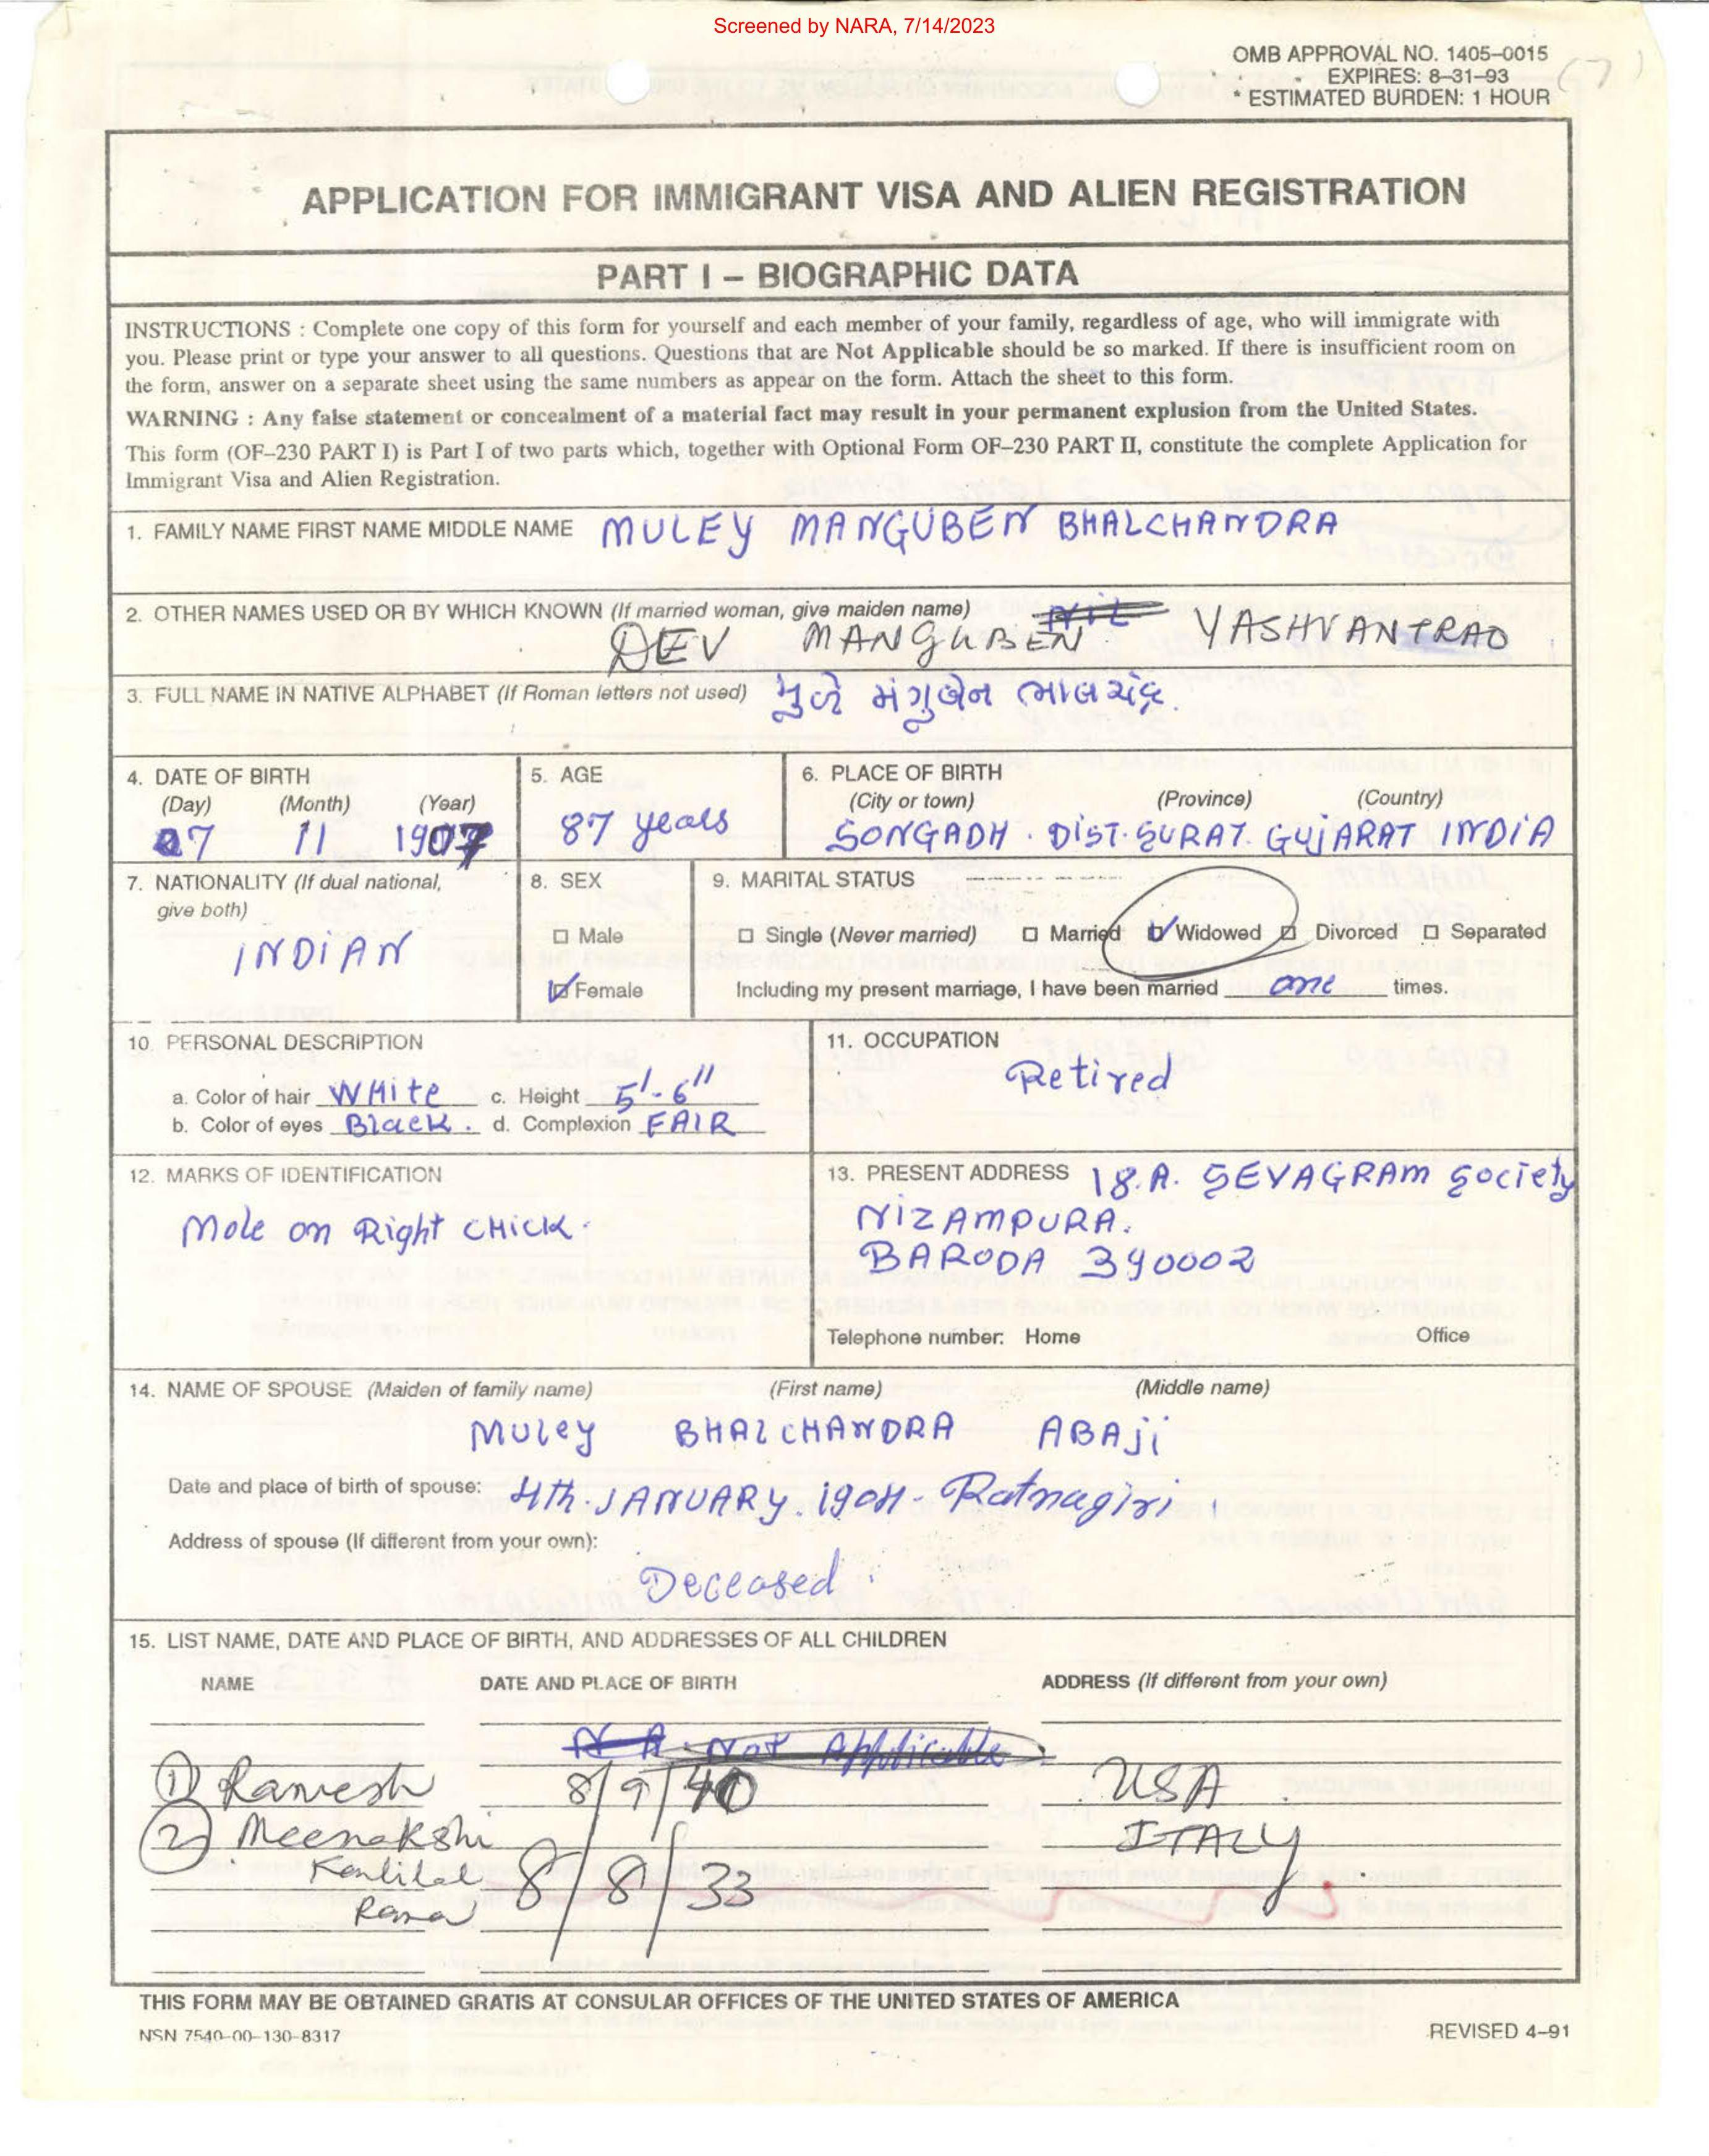 Screened by NARA, 7/14/2023
OMB APPROVAL NO. 1405–0015
EXPIRES: 8–31–93
* ESTIMATED BURDEN: 1 HOUR
(7)
APPLICATION FOR IMMIGRANT VISA AND ALIEN REGISTRATION
PART I – BIOGRAPHIC DATA
INSTRUCTIONS : Complete one copy of this form for yourself and each member of your family, regardless of age, who will immigrate with
you. Please print or type your answer to all questions. Questions that are Not Applicable should be so marked. If there is insufficient room on
the form, answer on a separate sheet using the same numbers as appear on the form. Attach the sheet to this form.
WARNING : Any false statement or concealment of a material fact may result in your permanent explusion from the United States.
This form (OF–230 PART I) is Part I of two parts which, together with Optional Form OF–230 PART II, constitute the complete Application for
Immigrant Visa and Alien Registration.
1. FAMILY NAME FIRST NAME MIDDLE NAME MULEY MANGUBEN BHALCHANDRA
2. OTHER NAMES USED OR BY WHICH KNOWN (If married woman, give maiden name) NIL
DEV MANGUBEN YASHVANTRAO
3. FULL NAME IN NATIVE ALPHABET (If Roman letters not used) મુળે મંગુબેન ભાલચંદ્ર.
4. DATE OF BIRTH
(Day) (Month) (Year)
07 11 1907
5. AGE
87 years
6. PLACE OF BIRTH
(City or town) (Province) (Country)
SONGADH . DIST. SURAT. GUJARAT INDIA
7. NATIONALITY (If dual national,
give both)
INDIAN
8. SEX
Male
Female
9. MARITAL STATUS
Single (Never married) Married Widowed Divorced Separated
Including my present marriage, I have been married one times.
10. PERSONAL DESCRIPTION
a. Color of hair WHite c. Height 5'-6"
b. Color of eyes Black. d. Complexion FAIR
11. OCCUPATION
Retired
12. MARKS OF IDENTIFICATION
Mole on Right CHick.
13. PRESENT ADDRESS 18.A. SEVAGRAM Society
NIZAMPURA.
BARODA 390002
Telephone number: Home Office
14. NAME OF SPOUSE (Maiden of family name) (First name) (Middle name)
Muley BHALCHANDRA ABAji
Date and place of birth of spouse: 4th. JANUARY. 1904 - Ratnagiri
Address of spouse (If different from your own):
Deceased.
15. LIST NAME, DATE AND PLACE OF BIRTH, AND ADDRESSES OF ALL CHILDREN
NAME DATE AND PLACE OF BIRTH ADDRESS (If different from your own)
N A. Not Applicable
1) Ramesh 8/9/40 USA
2) Meenakshi ITALY
Kantilal 8/8/33
Rana
THIS FORM MAY BE OBTAINED GRATIS AT CONSULAR OFFICES OF THE UNITED STATES OF AMERICA
NSN 7540-00-130-8317
REVISED 4–91